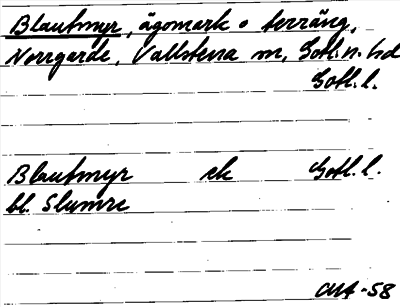 Blautmyr, ägomark o terräng,
Norrgarde, Vallstena sn, Gotl. n. hd
Gotl. l.
Blautmyr ek Gotl. l.
bl. Slumre
-58